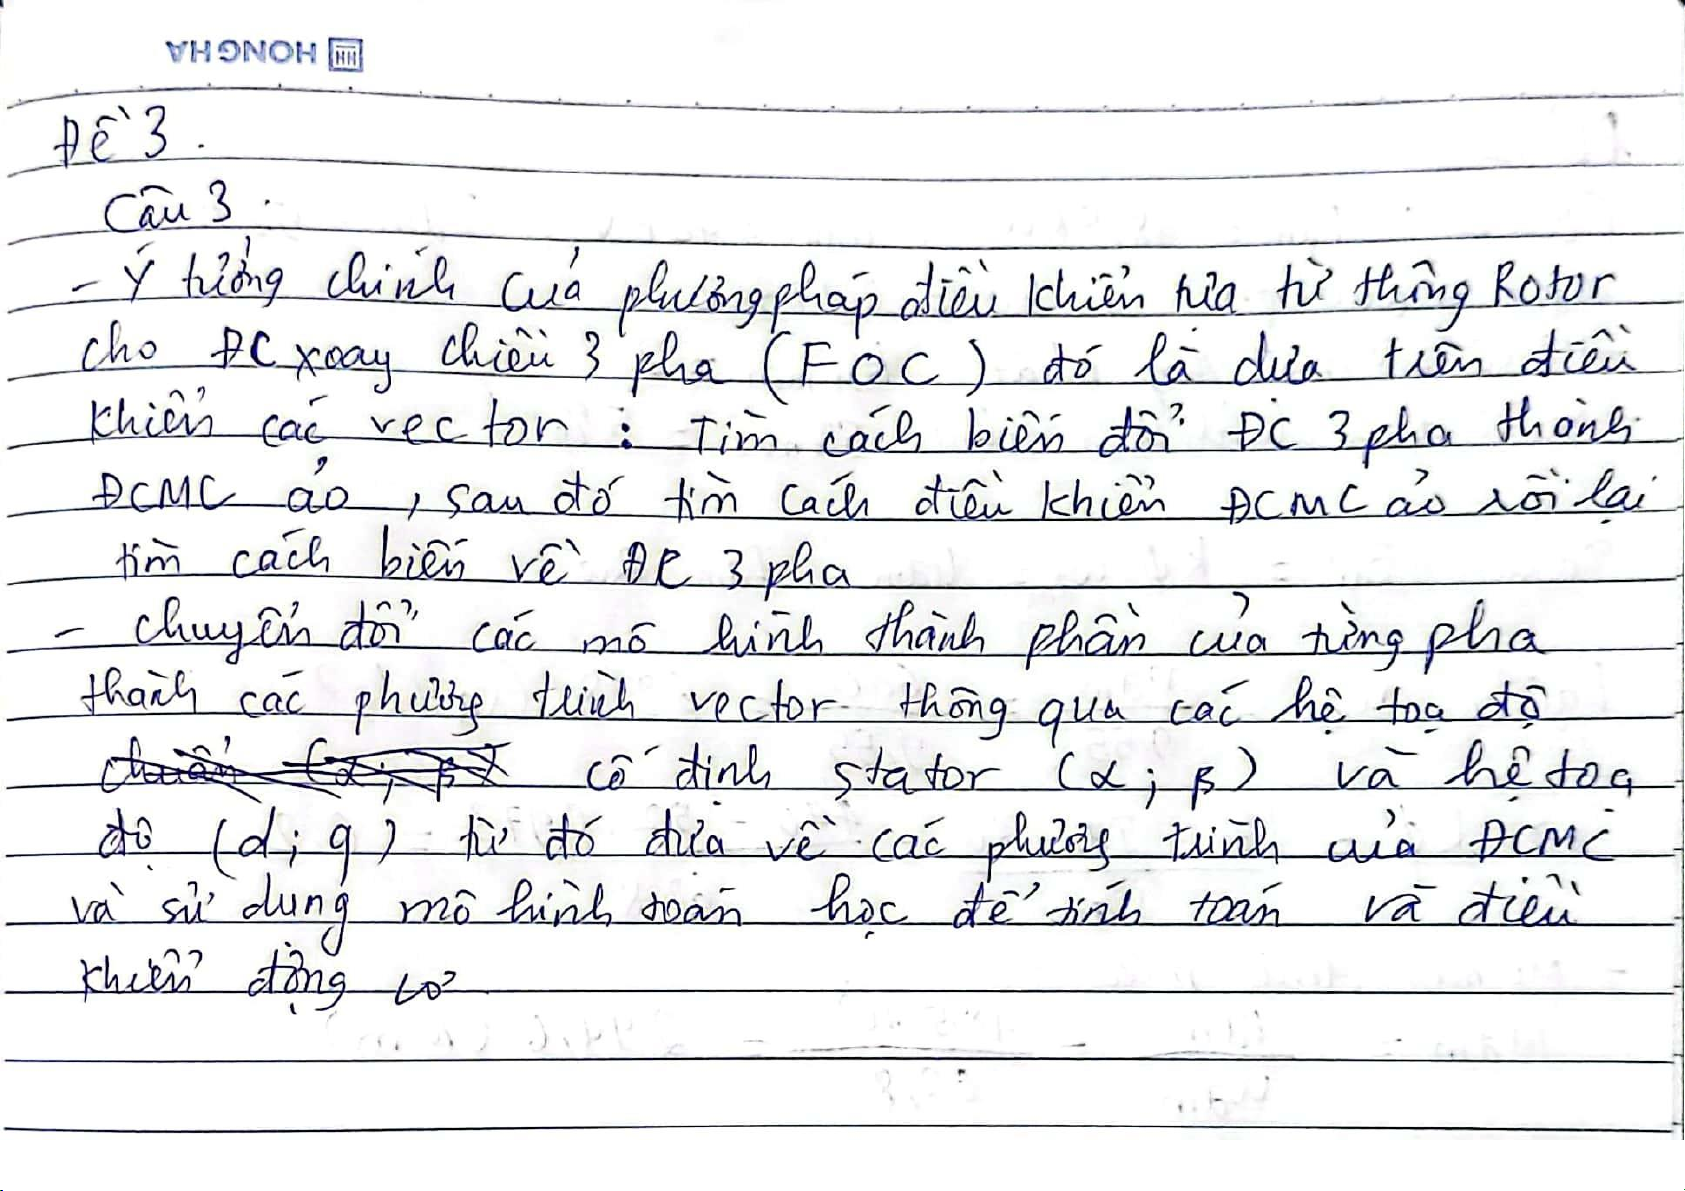 HONG HA
Đề 3.
Câu 3.
- Ý tưởng chính của phương pháp điều khiển tựa từ thông Rotor
cho ĐC xoay chiều 3 pha (FOC) đó là dựa trên điều
khiển các vector : Tìm cách biến đổi ĐC 3 pha thành
ĐCMC ảo, sau đó tìm cách điều khiển ĐCMC ảo rồi lại
tìm cách biến về ĐC 3 pha
- chuyển đổi các mô hình thành phần của từng pha
thành các phương trình vector thông qua các hệ toạ độ
chuẩn (α; β) cố định stator (α; β) và hệ toạ
độ (d; q) từ đó đưa về các phương trình của ĐCMC
và sử dụng mô hình toán học để tính toán và điều
khiển động cơ